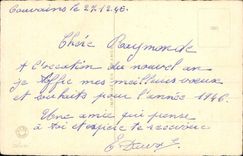 Couvains le 27.12.46.
Chére Raymonde
A l'occation du nouvel an
je t'offre mes meilleurs voeux
et souhaits pour l'année 1946.
Une amie qui pense
à toi et espère te recevoir